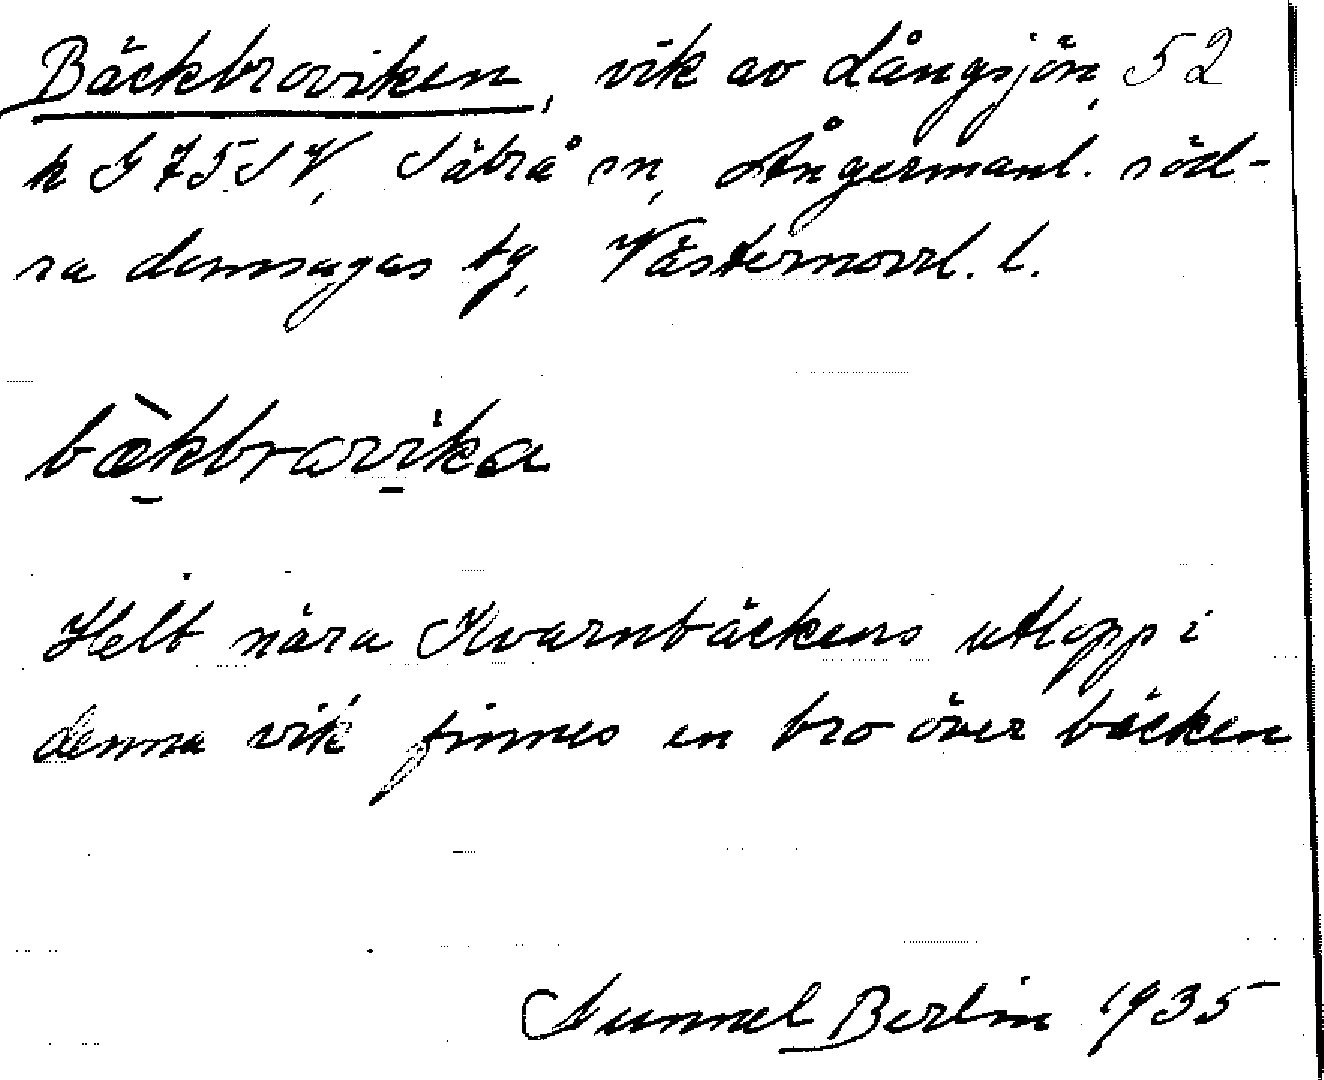 Bäckbroviken, vik av Långsjön, 52
h G 75 SV, Säbrå sn, Ångermanl. söd-
ra domsagas tg, Västernorrl. l.
bæ̀kbravika
Helt nära Kvarnbäckens utlopp i
denna vik finnes en bro över bäcken
Nunnel Berlin 1935